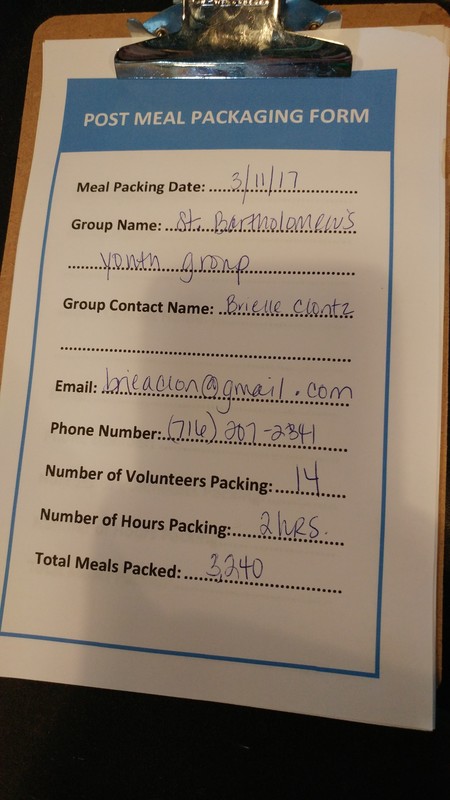 POST MEAL PACKAGING FORM
Meal Packing Date: 3/11/17
Group Name: St. Bartholomew's
youth group
Group Contact Name: Brielle Clontz
Email: brieaclon@gmail.com
Phone Number: (716) 207-2341
Number of Volunteers Packing: 14
Number of Hours Packing: 2 hRS.
Total Meals Packed: 3,240